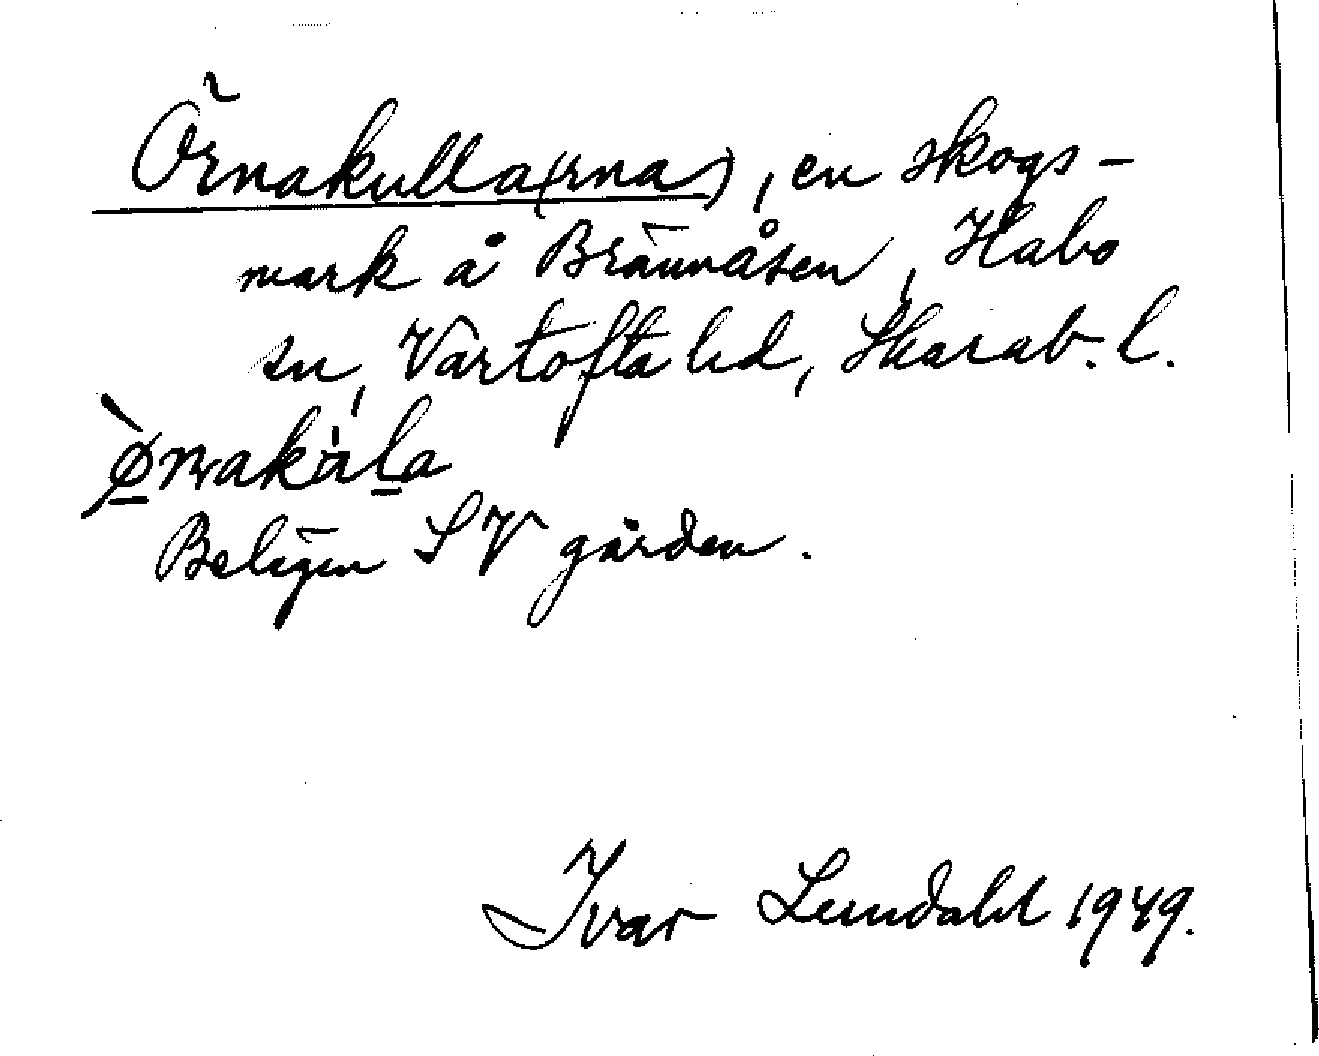 Örnakulla(rna), en skogs-
mark å Brännåsen, Habo
sn, Vartofta hd, Skarab. l.
Belägen SV gården.
Ivar Lundahl 1949.